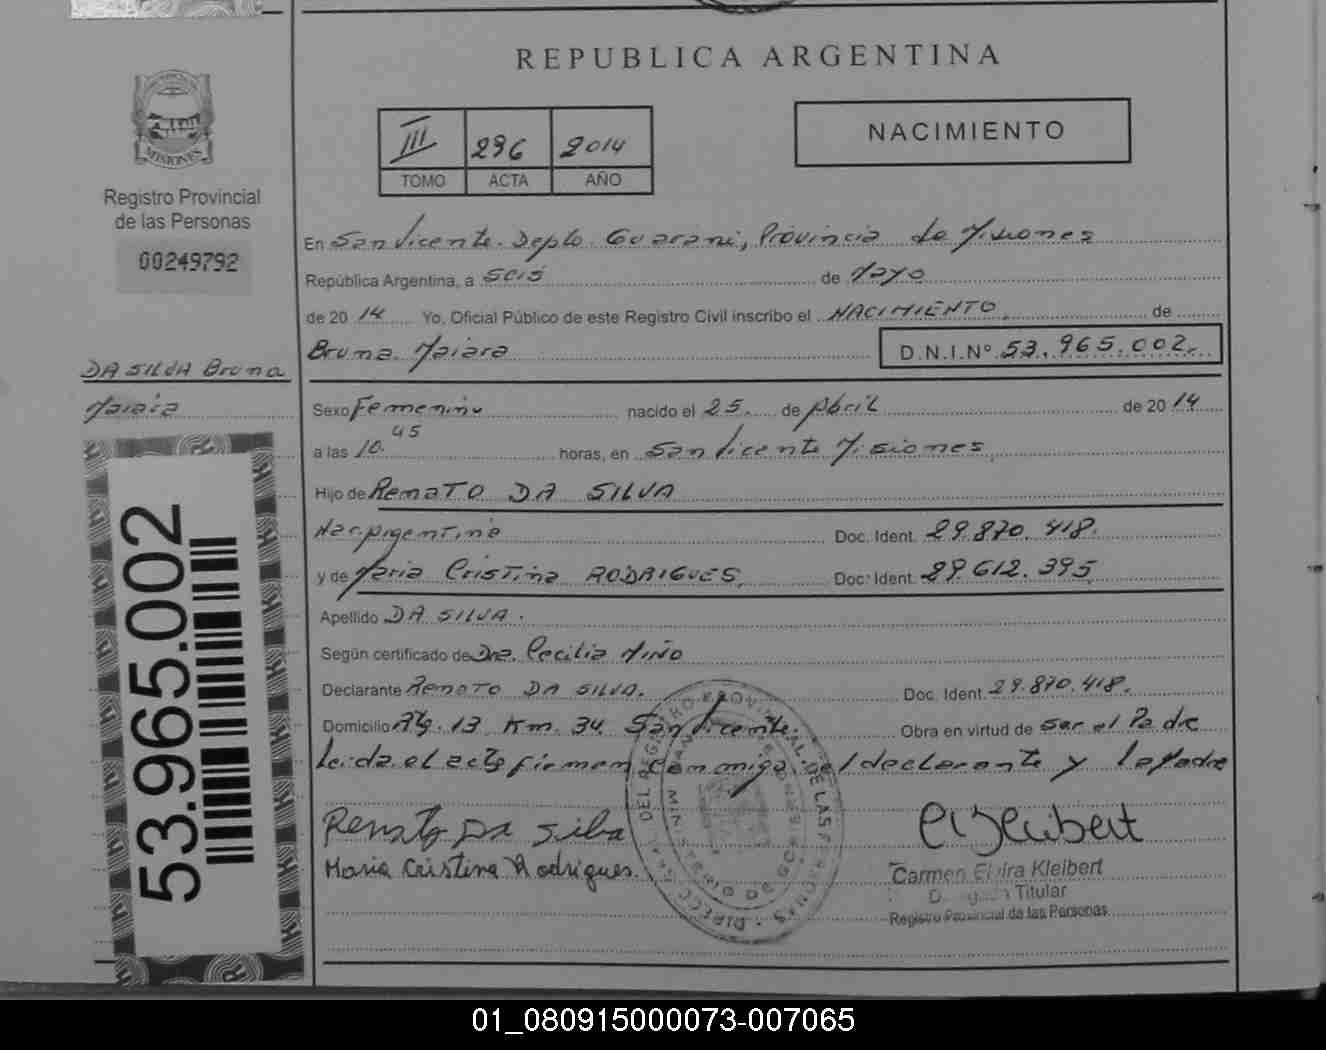 REPUBLICA ARGENTINA
NACIMIENTO
III 296 2014
TOMO ACTA AÑO
MISIONES
Registro Provincial
de las Personas
00249792
En San Vicente. Depto. Guarani, Provincia de Misiones
República Argentina, a seis de Mayo
de 2014 Yo, Oficial Público de este Registro Civil inscribo el NACIMIENTO de
Bruna Maiara D.N.I.Nº 53.965.002
DA SILVA Bruna
Maiara
Sexo Femenino nacido el 25 de Abril de 2014
a las 10.45 horas, en San Vicente Misiones
Hijo de Renato DA SILVA
Nac. Argentina Doc. Ident. 29.870.418.
y de Maria Cristina RODRIGUES Doc. Ident. 29.612.395
Apellido DA SILVA.
Según certificado de Dra. Cecilia MIÑO
Declarante Renato DA SILVA. Doc. Ident. 29.870.418.
Domicilio Km. 34 San Vicente. Obra en virtud de ser el Padre
Leida el acta firman conmigo el declarante y la Madre
Renato Da Silba
Maria Cristina Rodrigues.
Carmen Elvira Kleibert
Titular
Registro Provincial de las Personas
53.965.002
01_080915000073-007065